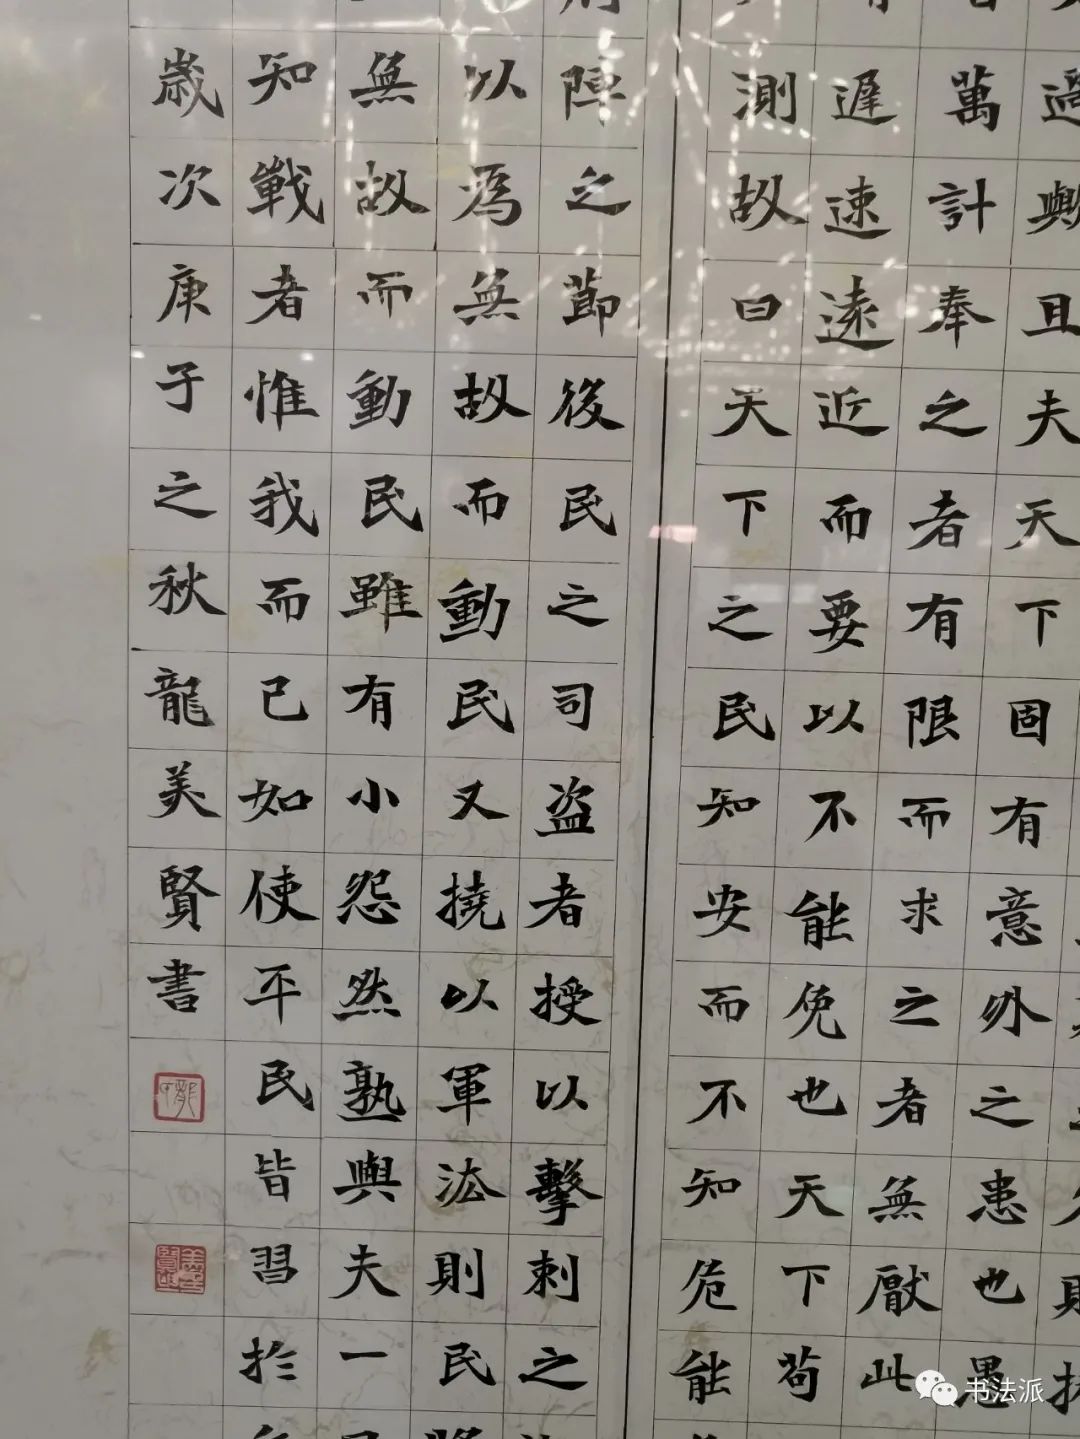 過與且夫天下固有意外之患也愚
萬計奉之者有限而求之者無厭此
遲速遠近而要以不能免也天下苟
測故曰天下之民知安而不知危能
陣之節後民之司盗者授以擊刺之
以為無故而動民又撓以軍法則民
無故而動民雖有小怨然熟與夫一
知戰者惟我而已如使平民皆習於
歲次庚子之秋龍美賢書
书法派